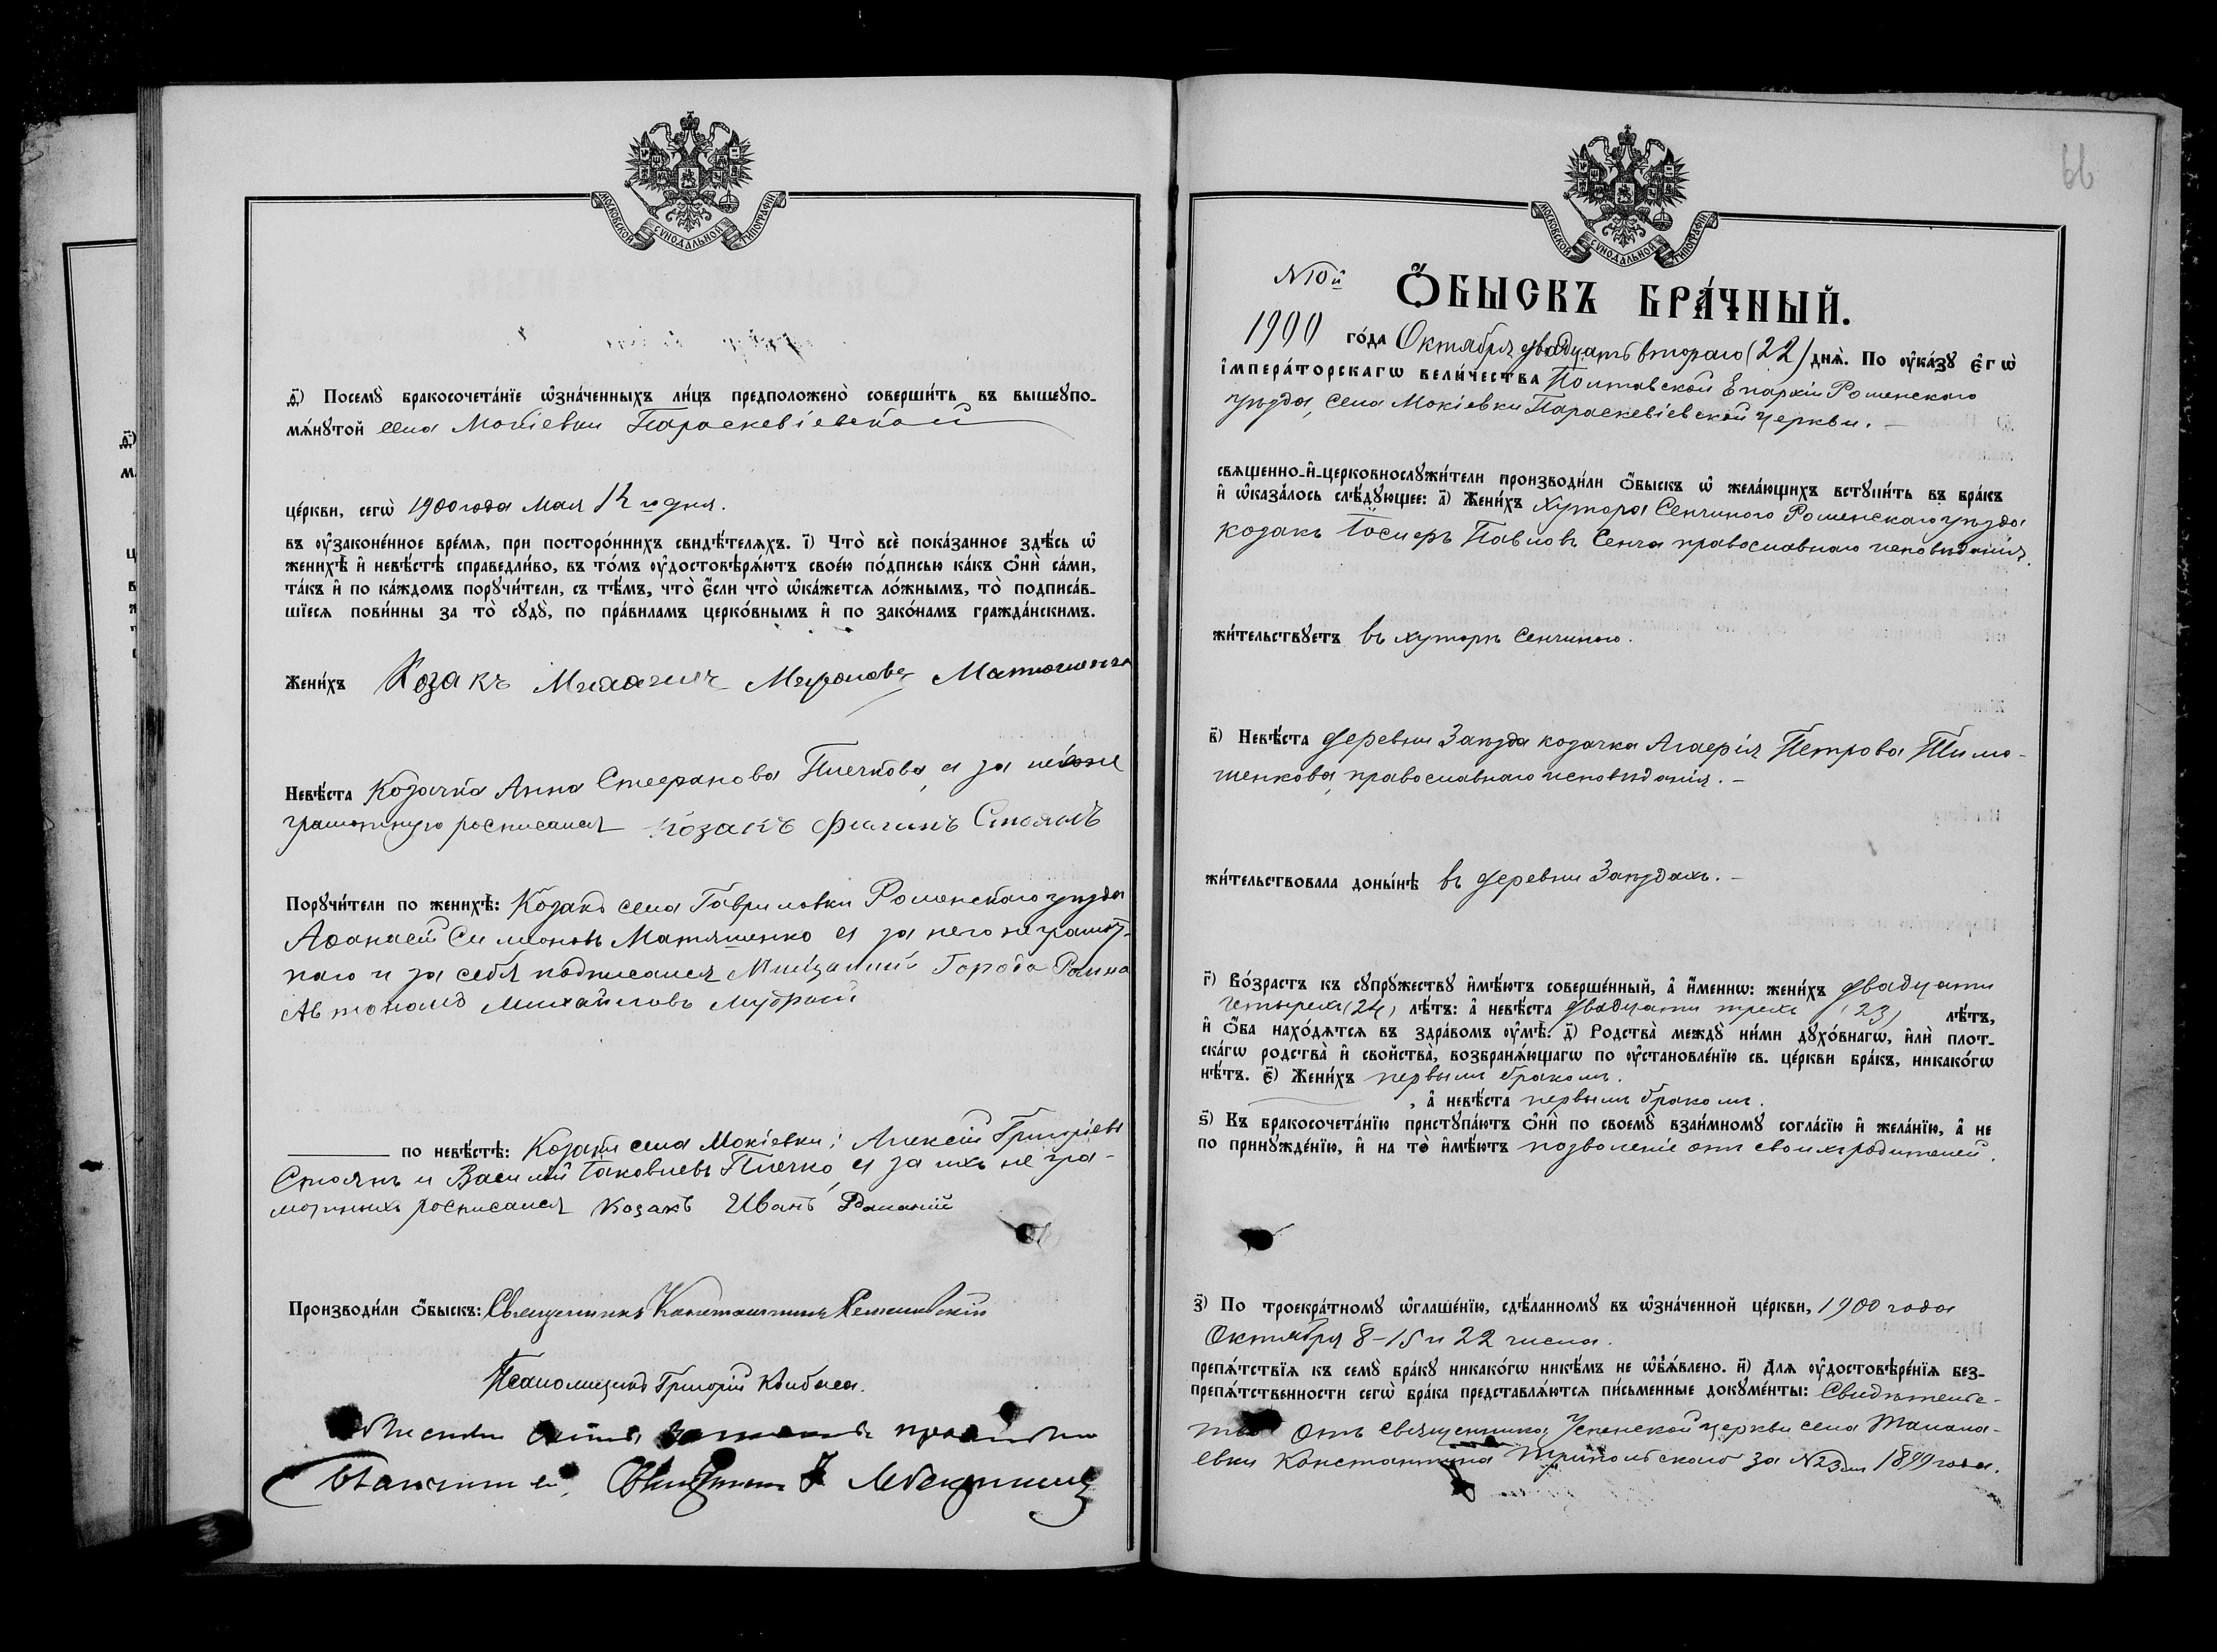 МОСКОВСКОЙ СѴНОДАЛЬНОЙ ТИПОГРАФІИ
д҃і) Посемꙋ̀ бракосочета́нїе ѡ҆зна́ченныхъ ли́цъ предположено̀ совершить въ вышеꙋпо-
мѧ́нꙋтой села Мокіевки Параскевіевской
це́ркви, сегѡ̀ 1900 года Мая 12 го дня.
въ ᲂу҆законе́нное вре́мѧ, при посторо́ннихъ свидѣ́телѧхъ. і҃) Что̀ всѐ пока́занное здѣ́сь ѡ҆
женихѣ̀ и҆ невѣ́стѣ справедли́во, въ то́мъ ᲂу҆достовѣрѧ́ютъ свое́ю по́дписью ка́къ ѻ҆нѝ са́ми,
та́къ и҆ по ка́ждомъ порꙋчи́тели, съ тѣ́мъ, что̀ є҆́сли что̀ ѡ҆ка́жетсѧ ло́жнымъ, то̀ подписа́в-
шїесѧ пови́нны за то̀ сꙋдꙋ̀, по пра́виламъ церко́внымъ и҆ по зако́намъ гражда́нскимъ.
Жени́хъ Козакъ Михаилъ Мироновъ
Невѣ́ста Козачка Анна Стефанова Плечкова, а за не
грамотную росписался козакъ Филипъ Стоянъ
Порꙋчи́тели по женихѣ̀: Козакъ села Гавриловки Роменскаго уѣзда
Афанасій Симоновъ Матяшенко а за него неграмот-
наго и за себя подписался Мищанинъ Города Ромна
Автономъ Михайловъ Мудрый
по невѣ́стѣ: Козаки села Мокіевки: Алексій Григоріевъ
Стоянъ и Василій Іаковлевъ Плечко, а за ихъ не гра-
мотныхъ росписался Козакъ Иванъ
Производи́ли ѻ҆́быскъ: Священникъ Константинъ
Псаломщикъ Григорій
66
МОСКОВСКОЙ СѴНОДАЛЬНОЙ ТИПОГРАФІИ
N 10й
Ѻ҆́БЫСКЪ БРА́ЧНЫЙ.
1900 го́да Октября двадцать втораго (22) днѧ̀. По ᲂу҆ка́зꙋ є҆гѡ̀
і҆мпера́торскагѡ вели́чества Полтавской Епархіи Роменскаго
уѣзда, села Мокіевки Параскевіевской церкви. –
свѧщенно-и҆-церковнослꙋжи́тели производи́ли ѻ҆́быскъ ѡ҆ жела́ющихъ встꙋпи́ть въ бра́къ
и҆ ѡ҆каза́лось слѣ́дꙋющее: а҃) Жени́хъ хутора Сенчиного Роменскаго уѣзда
козакъ Іосифъ Павловъ Сенча православнаго исповѣданія.
жи́тельствꙋетъ въ хуторѣ Сенчиного.
в҃) Невѣ́ста деревни Заѣзда козачка Агафія Петрова Тимо-
шенкова, православнаго исповѣданія. –
жи́тельствовала доны́нѣ въ деревни Заѣздахъ. –
г҃) Во́зрастъ къ сꙋпрꙋ́жествꙋ и҆мѣ́ютъ соверше́нный, а҆ и҆́меннѡ: жени́хъ двадцати
четырехъ (24) лѣ́тъ: а҆ невѣ́ста двадцати трехъ (23) лѣ́тъ,
и҆ ѻ҆́ба нахо́дѧтсѧ въ здра́вомъ ᲂу҆мѣ̀. д҃) Родства̀ междꙋ̀ ни́ми дꙋхо́внагѡ, и҆лѝ плот-
ска́гѡ родства̀ и҆ сво́йства̀, возбранѧ́ющагѡ по ᲂу҆становле́нїю св. це́ркви бра́къ, никако́гѡ
нѣ́тъ. є҃) Жени́хъ первымъ бракомъ.
, а҆ невѣ́ста первымъ бракомъ.
ѕ҃) Къ бракосочета́нїю пристꙋпа́ютъ ѻ҆нѝ по своемꙋ̀ взаи́мномꙋ согла́сїю и҆ жела́нїю, а҆ не
по принꙋжде́нїю, и҆ на то̀ и҆мѣ́ютъ позволеніе отъ своихъ родителей.
з҃) По троекра́тномꙋ ѡ҆глаше́нїю, сдѣ́ланномꙋ въ ѡ҆зна́ченной це́ркви, 1900 года
Октября 8 – 15 и 22 числа.
препѧ́тствїѧ къ семꙋ̀ бра́кꙋ никако́гѡ никѣ́мъ не ѡ҆б̾ѧ́влено. и҃) Длѧ ᲂу҆достовѣре́нїѧ без-
препѧ́тственности сегѡ̀ бра́ка представлѧ́ютсѧ пи́сьменные докꙋме́нты: Свидѣтельс-
тво Отъ священника Успенской церкви села Талала-
евки Константина Трипольскаго за N23мъ 1899 года.